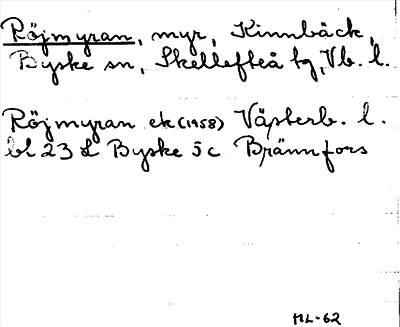 Röjmyran, myr, Kinnbäck,
Byske sn, Skellefteå tg, Vb. l.
Röjmyran ek (1958) Västerb. l.
bl 23 L Byske 5 c Brännfors
ML-62